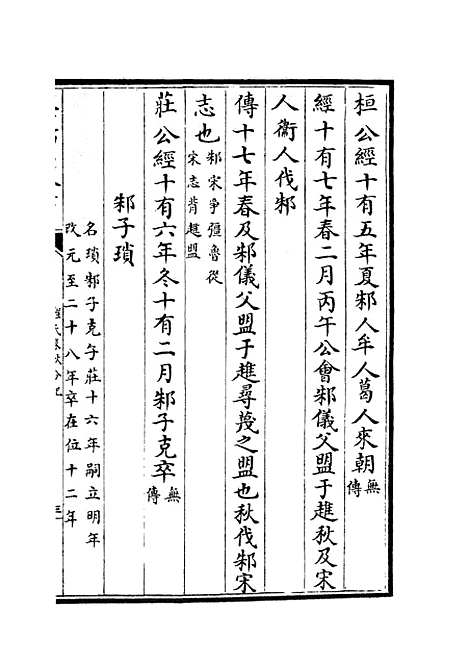 桓公經十有五年夏邾人牟人葛人來朝無傳
經十有七年春二月丙午公會邾儀父盟于趡秋及宋
人衞人伐邾
傳十七年春及邾儀父盟于趡尋蔑之盟也秋伐邾宋
志也邾宋爭疆魯從
宋志背趡盟
莊公經十有六年冬十有二月邾子克卒無傳
邾子瑣
名瑣邾子克子莊十六年嗣立明年
改元至二十八年卒在位十二年
程氏春秋分記